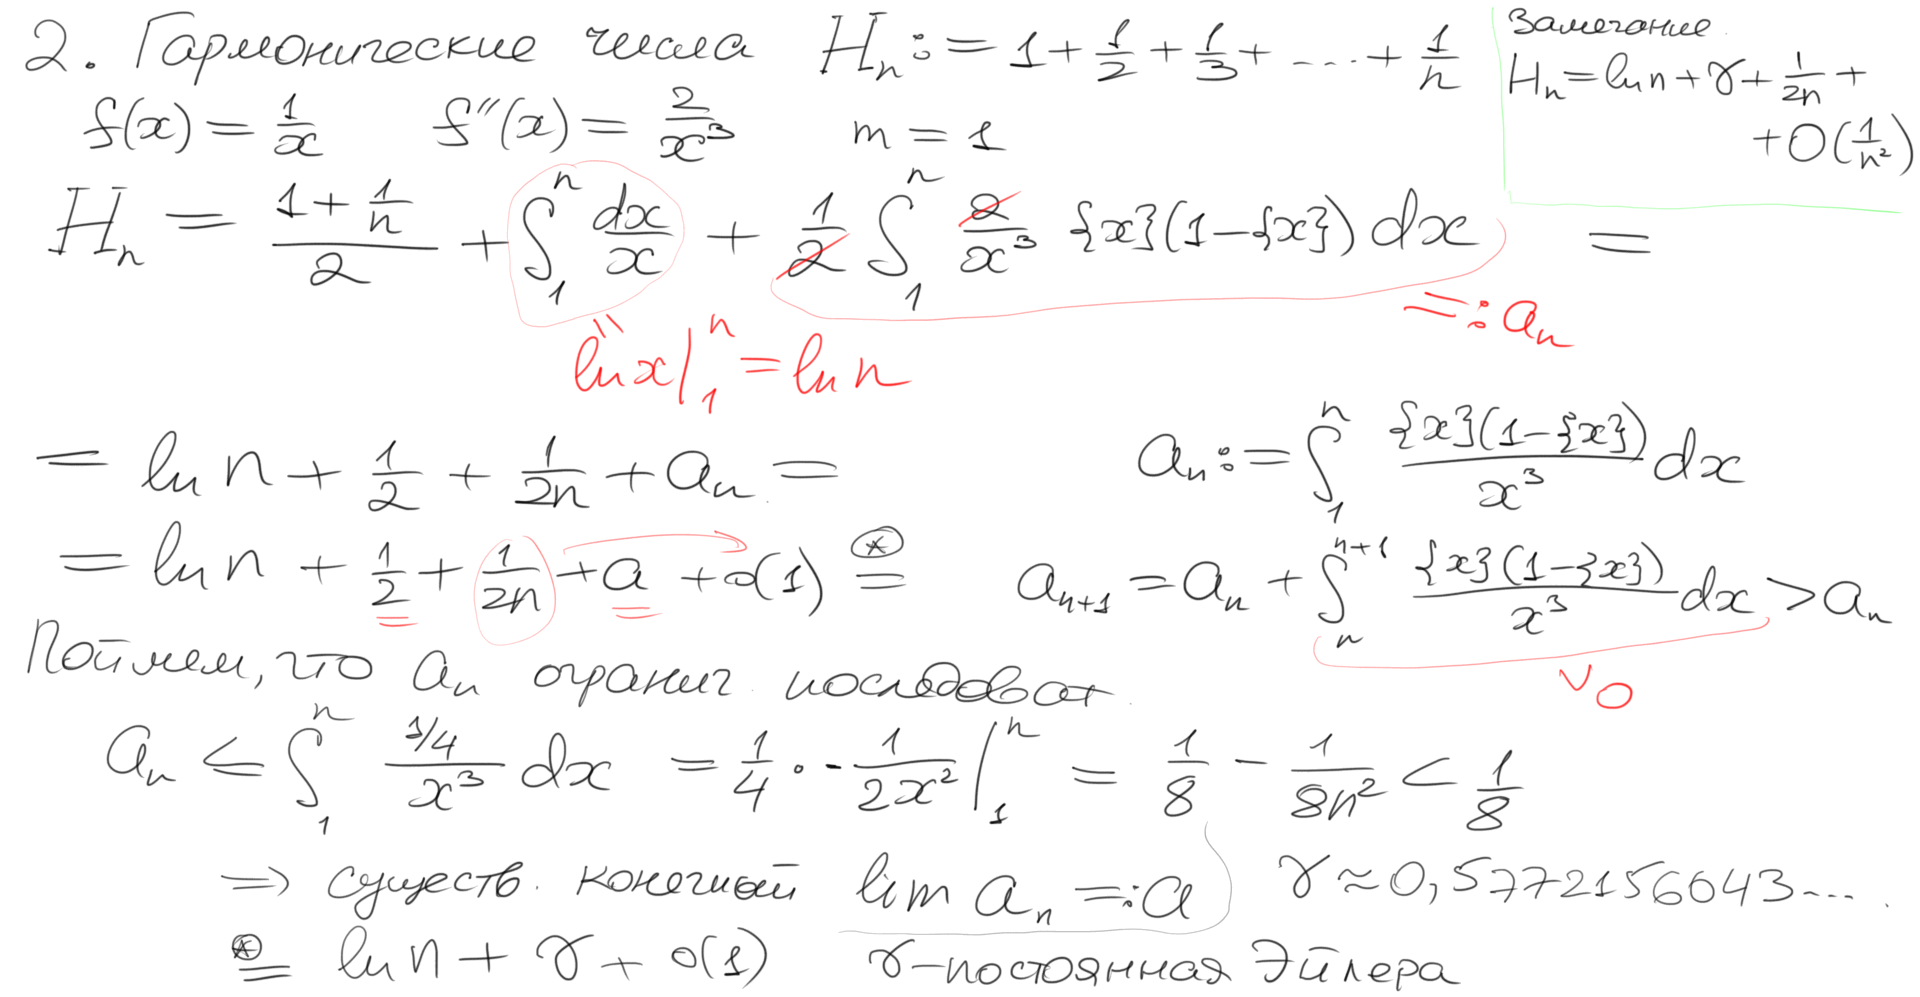 2. Гармонические числа H_n := 1 + 1/2 + 1/3 + .... + 1/n
Замечание.
H_n = ln n + γ + 1/2n +
+ O(1/n²)
f(x) = 1/x f''(x) = 2/x³ m = 1
H_n = (1 + 1/n)/2 + ∫_1^n dx/x + 1/2 ∫_1^n 2/x³ {x}(1-{x}) dx =
=: a_n
ln x |_1^n = ln n
= ln n + 1/2 + 1/2n + a_n =
a_n := ∫_1^n {x}(1-{x})/x³ dx
= ln n + 1/2 + 1/2n + a + o(1) ⊛=
a_{n+1} = a_n + ∫_n^{n+1} {x}(1-{x})/x³ dx > a_n
∨ 0
Поймем, что a_n огранич. последоват.
a_n ≤ ∫_1^n (1/4)/x³ dx = 1/4 · - 1/2x² |_1^n = 1/8 - 1/8n² < 1/8
=> существ. конечный lim a_n =: a
γ ≈ 0,5772156043....
⊛= ln n + γ + o(1) γ - постоянная Эйлера